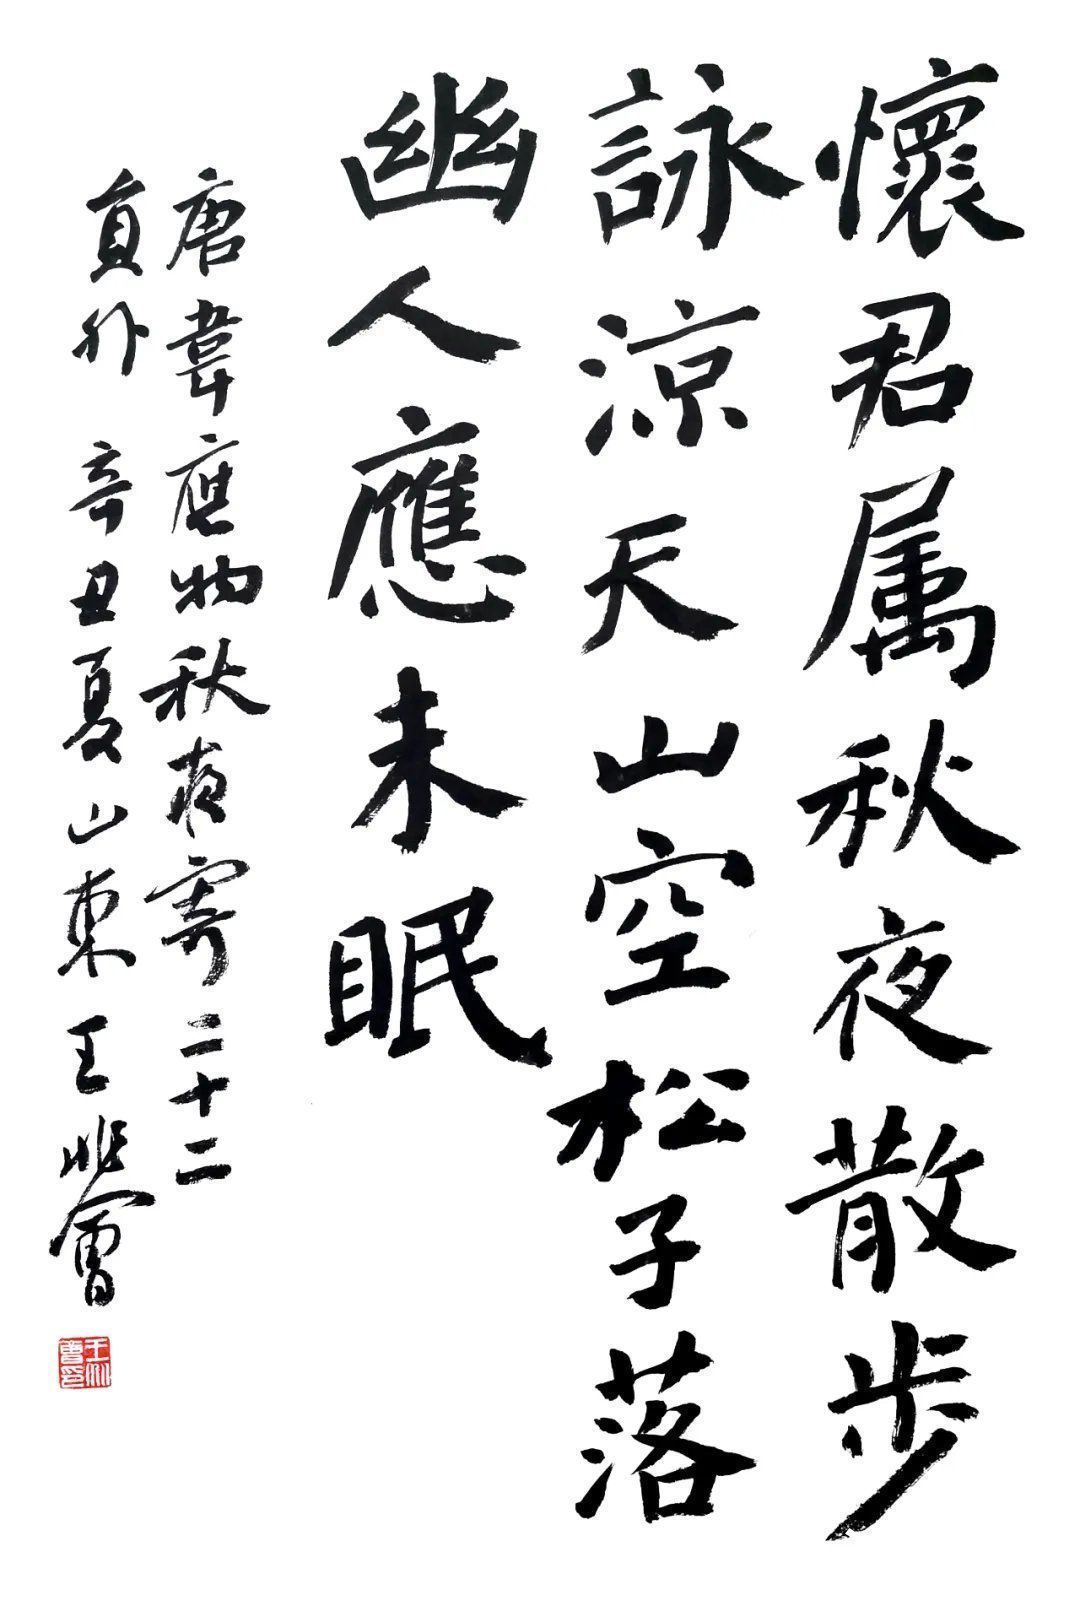 懷君属秋夜散步
詠涼天山空松子落
幽人應未眠
唐韋應物秋夜寄二十二
員外 辛丑夏山東王